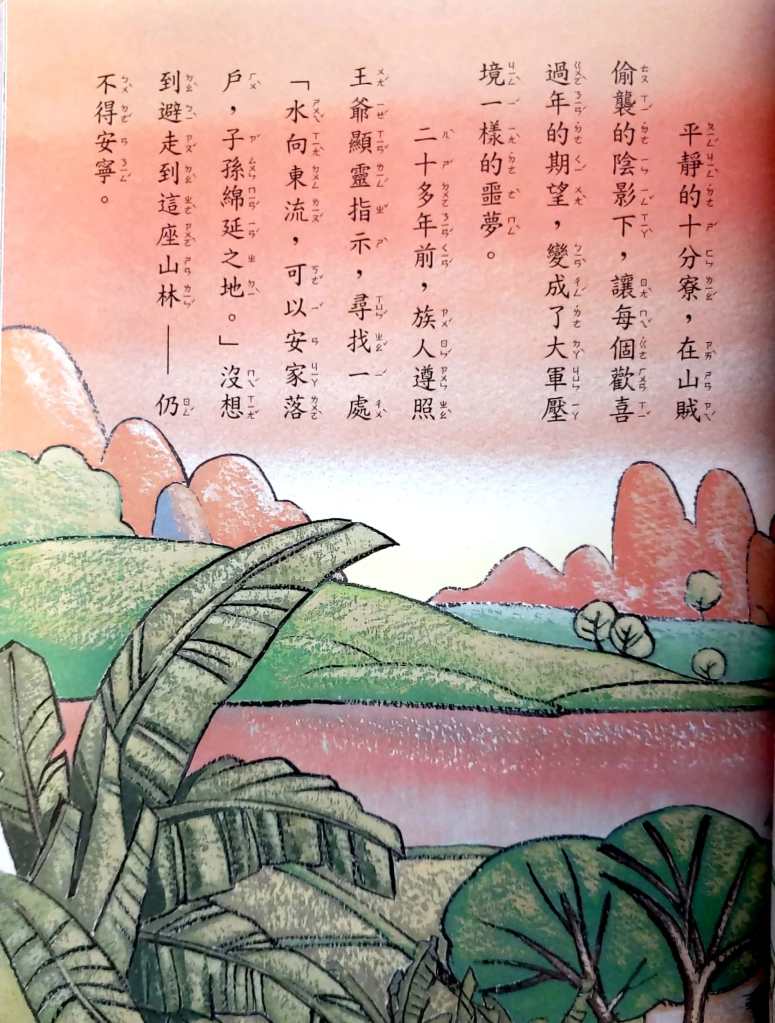 平靜的十分寮，在山賊
偷襲的陰影下，讓每個歡喜
過年的期望，變成了大軍壓
境一樣的噩夢。
二十多年前，族人遵照
王爺顯靈指示，尋找一處
「水向東流，可以安家落
戶，子孫綿延之地。」沒想
到避走到這座山林——仍
不得安寧。